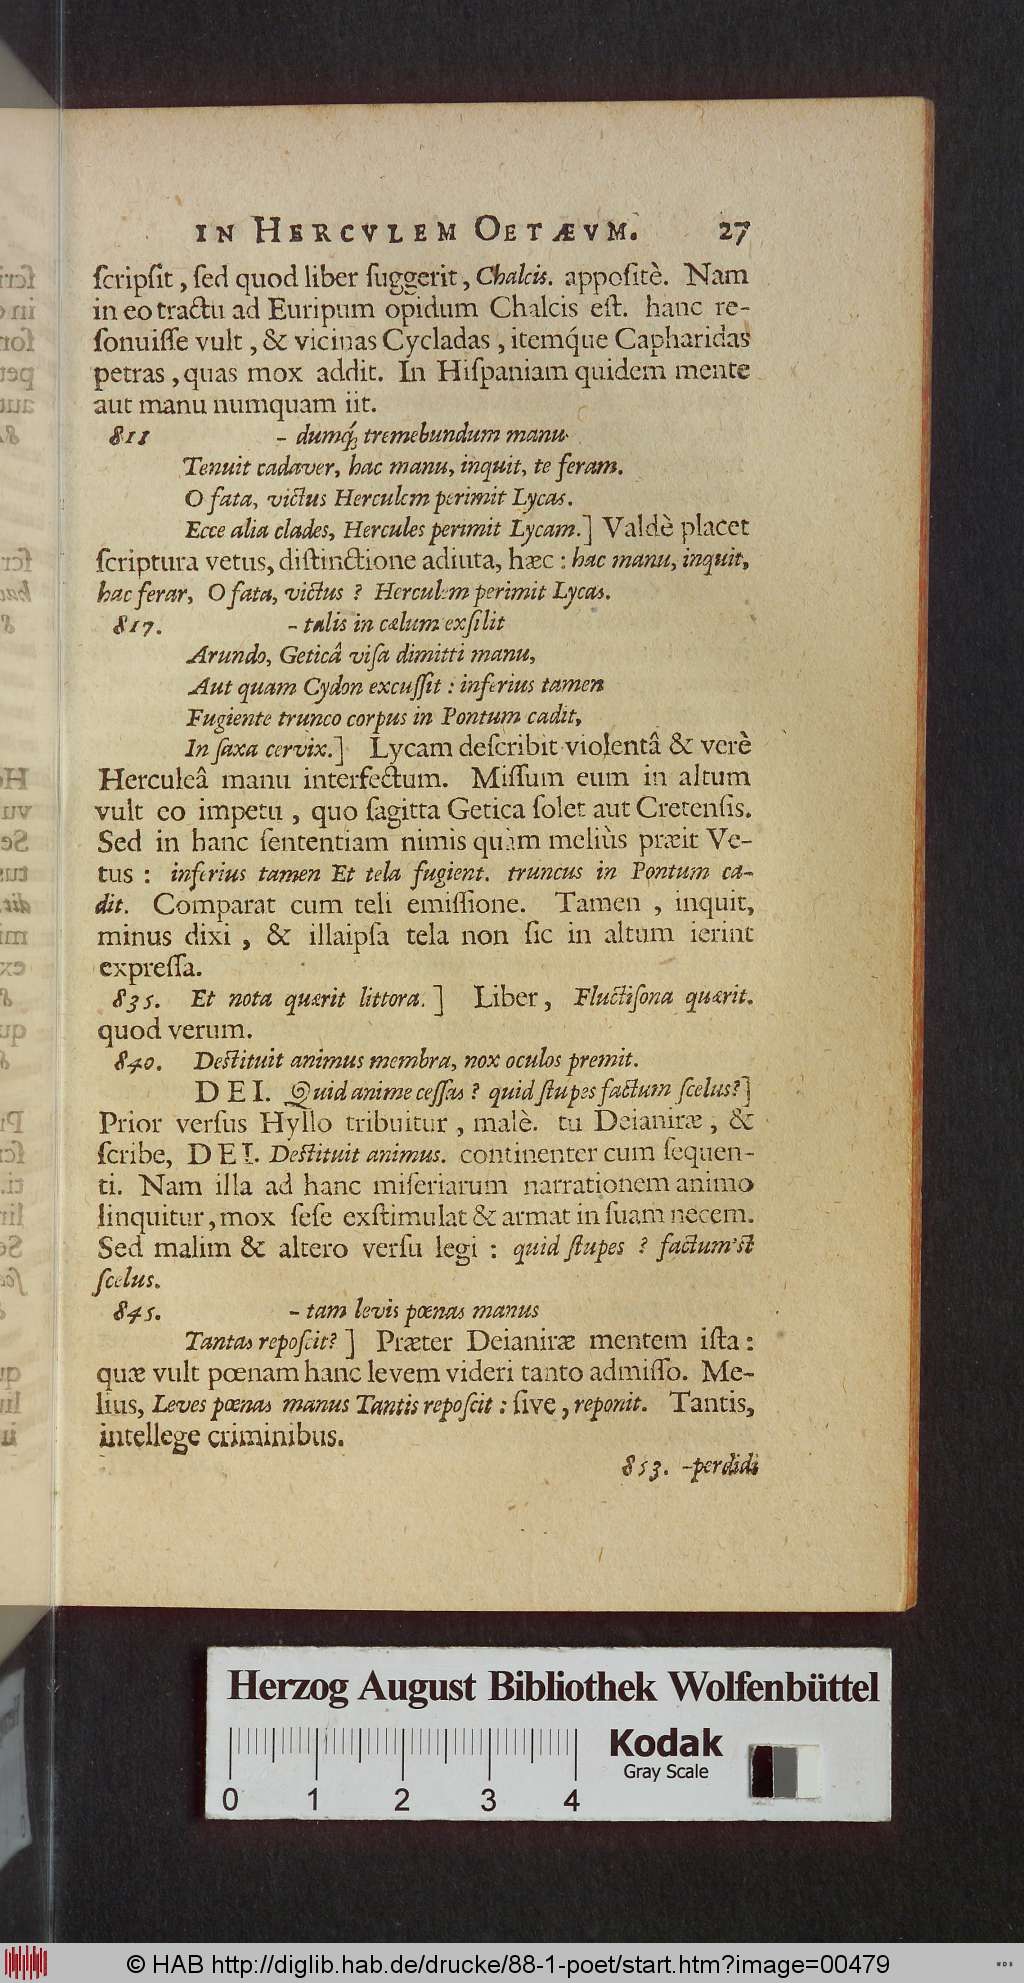 IN HERCVLEM OETÆVM. 27
ſcripſit, ſed quod liber ſuggerit, Chalcis. appoſitè. Nam
in eo tractu ad Euripum opidum Chalcis eſt. hanc re-
ſonuiſſe vult, & vicinas Cycladas, itemq́ue Capharidas
petras, quas mox addit. In Hiſpaniam quidem mente
aut manu numquam iit.
811 - dumq́; tremebundum manu
Tenuit cadaver, hac manu, inquit, te feram.
O fata, victus Herculem perimit Lycas.
Ecce alia clades, Hercules perimit Lycam.] Valdè placet
ſcriptura vetus, diſtinctione adiuta, hæc : hac manu, inquit,
hac ferar, O fata, victus ? Herculem perimit Lycas.
817. - talis in cælum exſilit
Arundo, Geticâ viſa dimitti manu,
Aut quam Cydon excuſſit : inferius tamen
Fugiente trunco corpus in Pontum cadit,
In ſaxa cervix.] Lycam deſcribit violentâ & verè
Herculeâ manu interfectum. Miſſum eum in altum
vult eo impetu, quo ſagitta Getica ſolet aut Cretenſis.
Sed in hanc ſententiam nimis quàm meliùs præit Ve-
tus : inferius tamen Et tela fugient. truncus in Pontum ca-
dit. Comparat cum teli emiſſione. Tamen, inquit,
minus dixi, & illaipſa tela non ſic in altum ierint
expreſſa.
835. Et nota quærit littora.] Liber, Fluctiſona quærit.
quod verum.
840. Deſtituit animus membra, nox oculos premit.
DEI. Quid anime ceſſas ? quid ſtupes factum ſcelus?]
Prior verſus Hyllo tribuitur, malè. tu Deianiræ, &
ſcribe, DEI. Deſtituit animus. continenter cum ſequen-
ti. Nam illa ad hanc miſeriarum narrationem animo
linquitur, mox ſeſe exſtimulat & armat in ſuam necem.
Sed malim & altero verſu legi : quid ſtupes ? factum'ſt
ſcelus.
845. - tam levis pœnas manus
Tantas repoſcit?] Præter Deianiræ mentem iſta :
quæ vult pœnam hanc levem videri tanto admiſſo. Me-
lius, Leves pœnas manus Tantis repoſcit : ſive, reponit. Tantis,
intellege criminibus.
853. -perdidi
Herzog August Bibliothek Wolfenbüttel
Kodak
Gray Scale
0 1 2 3 4
© HAB http://diglib.hab.de/drucke/88-1-poet/start.htm?image=00479